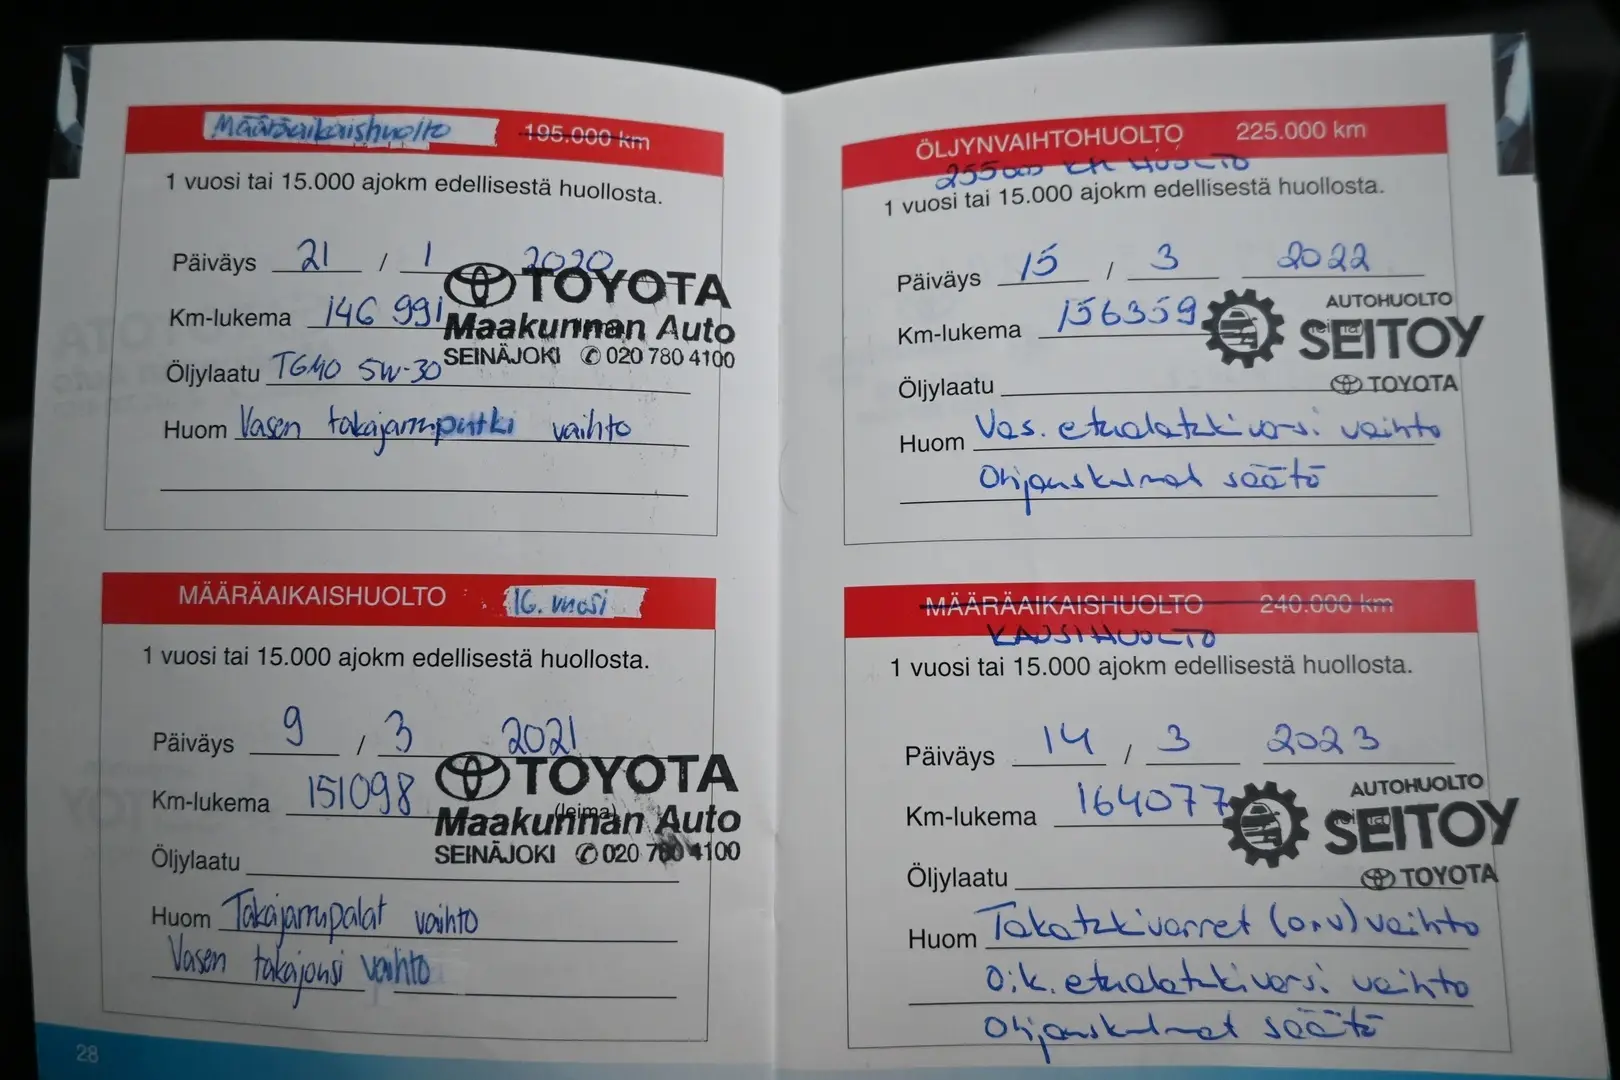 Määräaikaishuolto 195.000 km
1 vuosi tai 15.000 ajokm edellisestä huollosta.
Päiväys 21 / 1 2020
Km-lukema 146 991
Öljylaatu TGMO 5W-30
Huom Vasen takajarruputki vaihto
TOYOTA
Maakunnan Auto
SEINÄJOKI ✆ 020 780 4100
MÄÄRÄAIKAISHUOLTO 16. vuosi
1 vuosi tai 15.000 ajokm edellisestä huollosta.
Päiväys 9 / 3 2021
Km-lukema 151098
(leima)
Öljylaatu
Huom Takajarrupalat vaihto
Vasen takajousi vaihto
TOYOTA
Maakunnan Auto
SEINÄJOKI ✆ 020 780 4100
28
ÖLJYNVAIHTOHUOLTO 225.000 km
255000 KM HUOLTO
1 vuosi tai 15.000 ajokm edellisestä huollosta.
Päiväys 15 / 3 2022
Km-lukema 156359
Öljylaatu
Huom Vas. etualatukivarsi vaihto
Ohjauskulmat säätö
AUTOHUOLTO
SEITOY
TOYOTA
MÄÄRÄAIKAISHUOLTO 240.000 km
KAUSIHUOLTO
1 vuosi tai 15.000 ajokm edellisestä huollosta.
Päiväys 14 / 3 2023
Km-lukema 164077
Öljylaatu
Huom Takatukivarret (o+v) vaihto
Oik. etualatukivarsi vaihto
Ohjauskulmat säätö
AUTOHUOLTO
SEITOY
TOYOTA